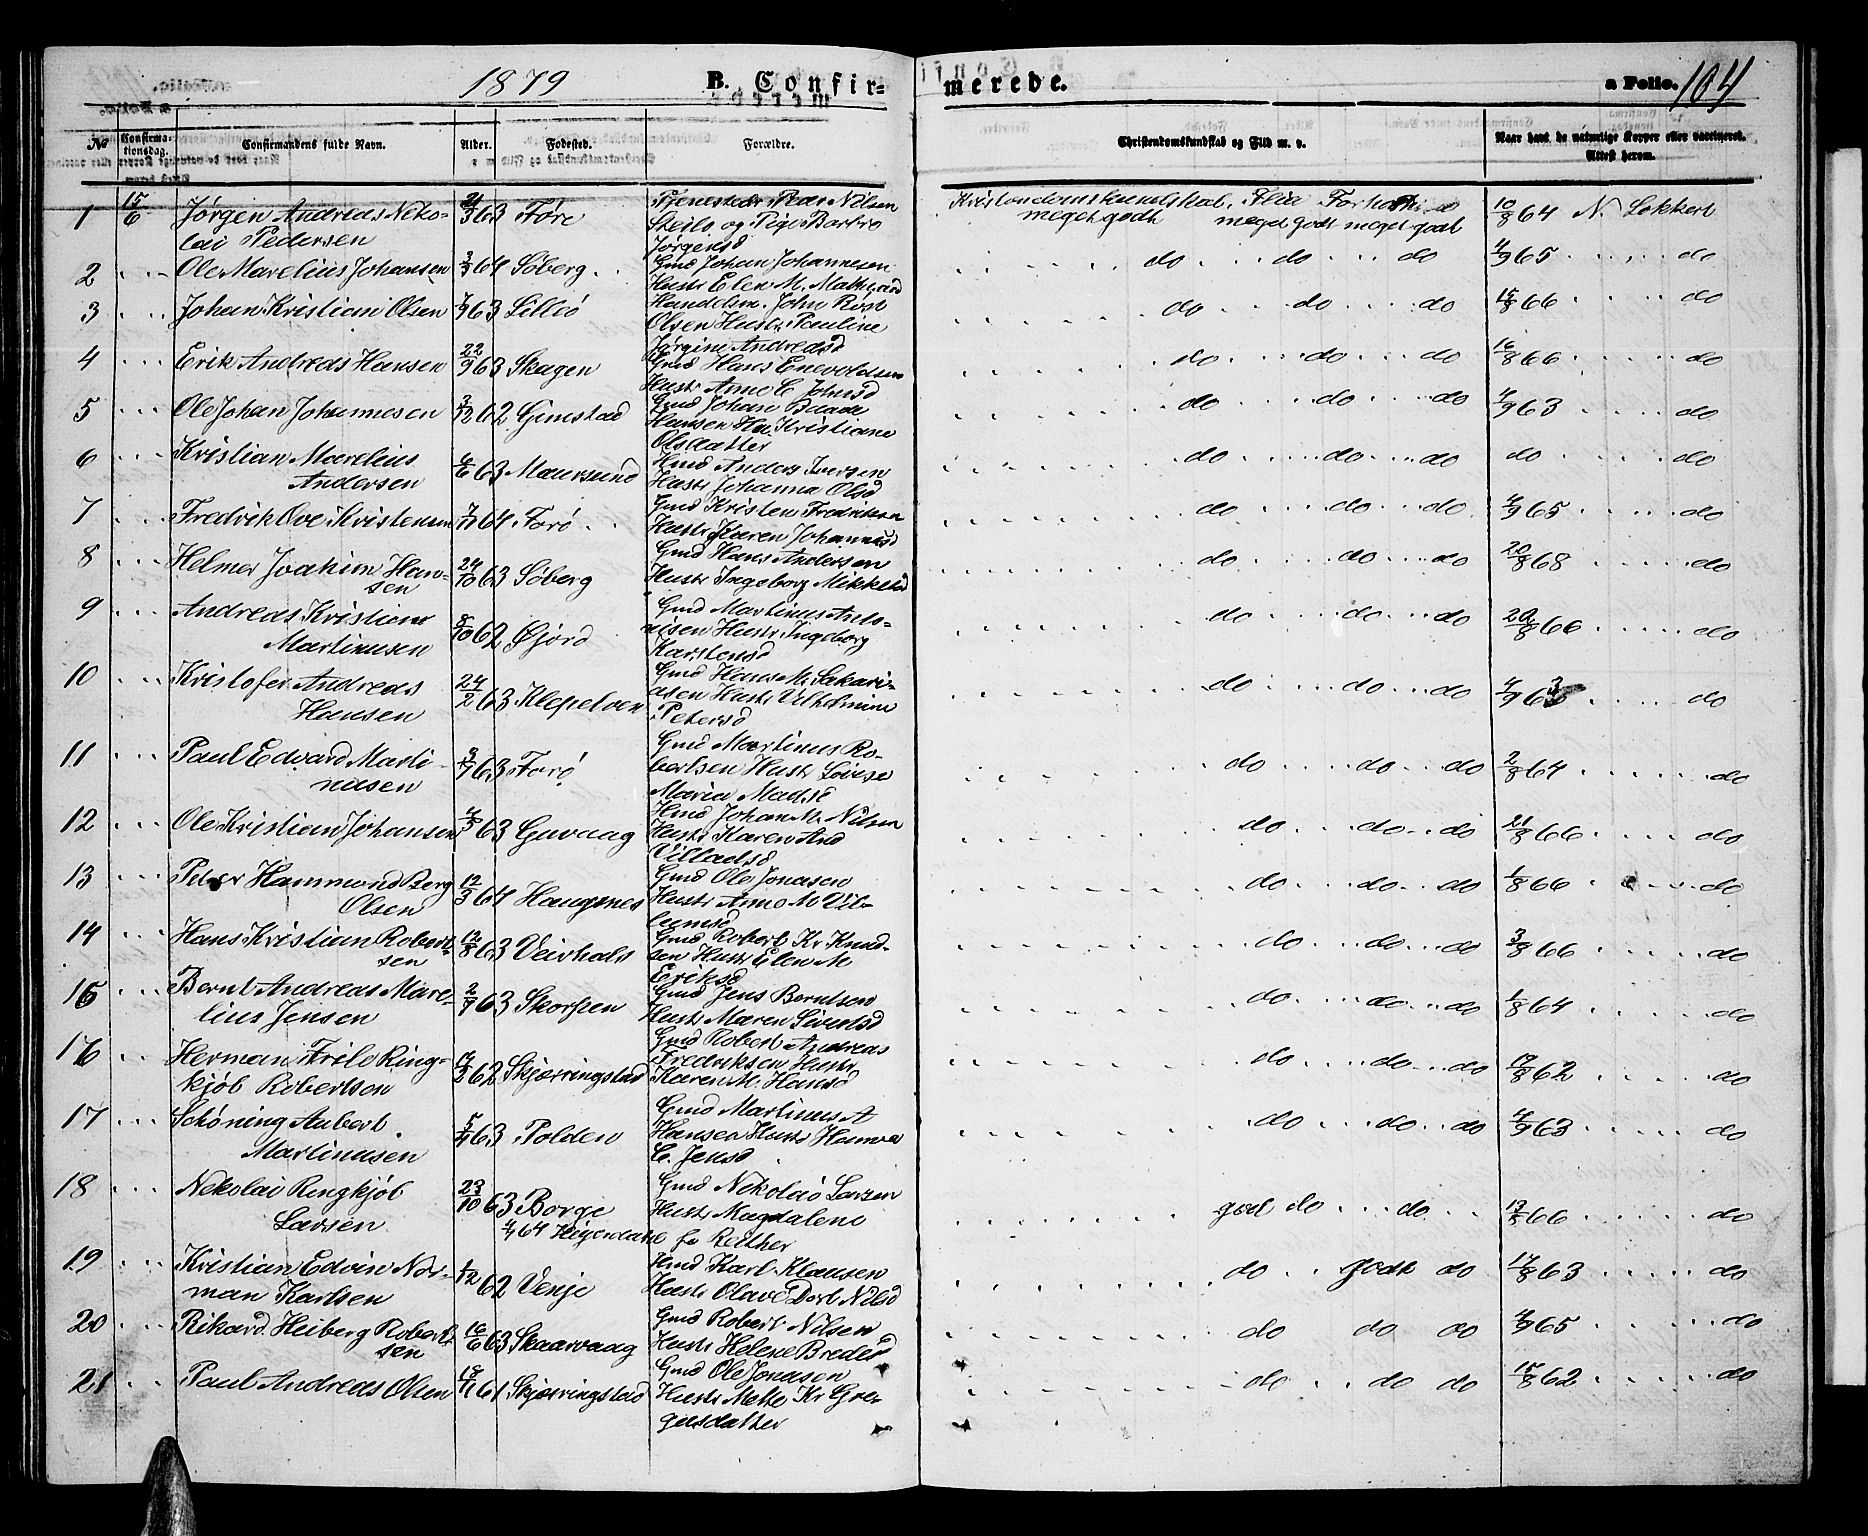 1879 B. Confir- merede. a Folio. 104
No Confirmationsdag. Confirmandens fulde Navn. Alder. Fødested. Forældre. Christendomskundskab og Flid m. v. Naar havt de naturlige Kopper eller vaccineret. Attest herom.
1 15/6 Jørgen Andreas Niko- 63 Føre Tjenestedr Peder Nilsen Kristendomskundskab, Flid Forhold 10/8 64 N. Lokkert
lai Pedersen og Pige meget godt meget godt meget godt
Jørgensd
2 Ole Marelius Johansen 64 Søberg Gmd Johan Johannesen do do do 4/9 65 do
Hustr Elen M.
3 Johan Kristian Olsen 7/9 63 Lillø Handelsm. John Rost do do do 15/8 66 do
Olsen Hustr. Pauline
Jørgine Andreasd
4 Erik Andreas Hansen 22/9 63 Skagen Gmd Hans Enevoldsen do do do 16/8 66 do
Hustr Anne C Johnsd
5 Ole Johan Johannesen 3/12 62 Gimstad Gmd Johan Baade do do do 4/9 63 do
Hansen Hu. Kristiane
Olsdatter
6 Kristian Marelius 6/6 63 Maursund Hmd Anders Iversen do do do do do
Andersen Hustr Johanna Olsd
7 Fredrik Ove Kristensen 64 Forø Gmd Kristen Fredriksen do do do 4/9 65 do
Hustr Karen Johannesd
8 Helmer Joakim Han- 24/10 63 Søberg Gmd Hans Andersen do do do 20/8 68 do
sen Hustr Ingeborg Mikkelsd
9 Andreas Kristian 8/10 62 Øjord Gmd Martinus Anto- do do do 20/8 66 do
Martinusen nisen Hustr Ingeborg
Karstensd
10 Kristofer Andreas 24/2 63 Klepelven Gmd Hans M. Sakari- do do do 4/9 63 do
Hansen asen Hustr Vilhelmine
Petersd
11 Paul Edvard Marti- 63 Forø Gmd Martinus Ro- do do do 2/8 64 do
nusen bertsen Hustr Lovise
Maria Madsd
12 Ole Kristian Johansen 4/5 63 Guvaag Hmd Johan M. Nilsen do do do 21/8 66 do
Hustr Karen And
Villadsd
13 Peter Hammond Berg 12/3 64 Haugsnes Gmd Ole Jonasen do do do 1/8 66 do
Olsen Hustr Anne M Vil-
lumsd
14 Hans Kristian Robert- 12/8 63 Veirhals Gmd Robert Kr Knud- do do do 3/8 66 do
sen sen Hustr Elen M
Eriksd
15 Bernt Andreas Mare- 2/9 63 Skorpen Gmd Jens Berntsen do do do 1/8 64 do
lius Jensen Hustr Maren Sivertsd
16 Herman Friile Ring- 62 Skjærringstad Gmd Robert Andreas do do do 62 do
kjöb Robertsen Fredriksen Hustr
Karen M. Hansd
17 Schöning Aubert 63 Polden Gmd Martinus A do do do 4/9 63 do
Martinusen Hansen Hustr Hanna
C. Jensd
18 Nikolai Ringkjöb 23/10 63 Borge Gmd Nikolai Larsen god do do 66 do
Larsen 64 Hustr Magdalene
f. Reither
19 Kristian Edvin Nor- 1/12 62 Venje Hmd Karl Klausen do godt do 17/8 63 do
man Karlsen Hustr Olave Dort Nilsd
20 Rikard Heiberg Robert- 16/6 63 Skaarvaag Gmd Robert Nilsen do do do 4/9 65 do
sen Hustr Helene
21 Paul Andreas Olsen 18/11 61 Skjærringstad Gmd Ole Jonasen do do do 15/8 62 do
Hustr Mette Kr Gre-
gusdatter